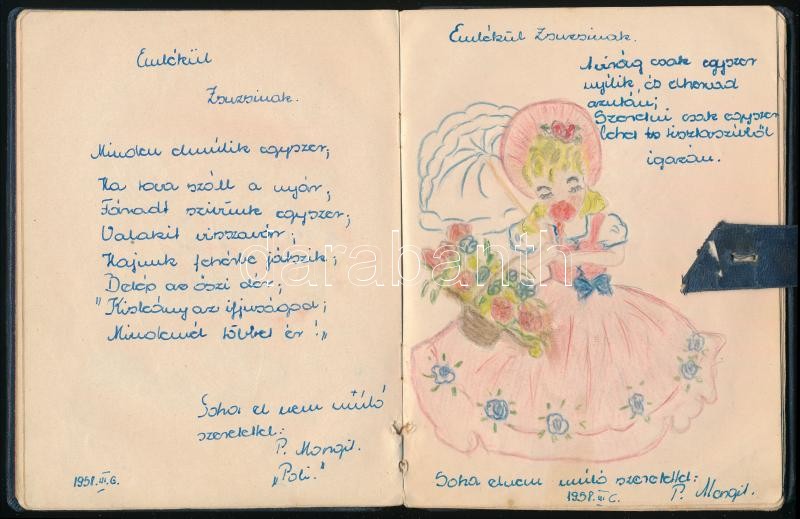 Emlékül
Zsuzsinak.
Minden elmúlik egyszer,
Ha tova száll a nyár,
Fáradt szivünk egyszer,
Valakit visszavár,
Hajunk fehérbe játszik,
Belép az őszi dér,
"Kislány az ifjuságod,
Mindennél többet ér!"
Soha el nem múló
szeretettel:
P. Margit.
"Poli."
1958. III. 6.
Emlékül Zsuzsinak.
Virág csak egyszer
nyílik, és elhervad
azután;
Szeretni csak egyszer
lehet tisztaszívből
igazán.
Soha el nem múló szeretettel:
1958. III 6. P. Margit.
darabanth